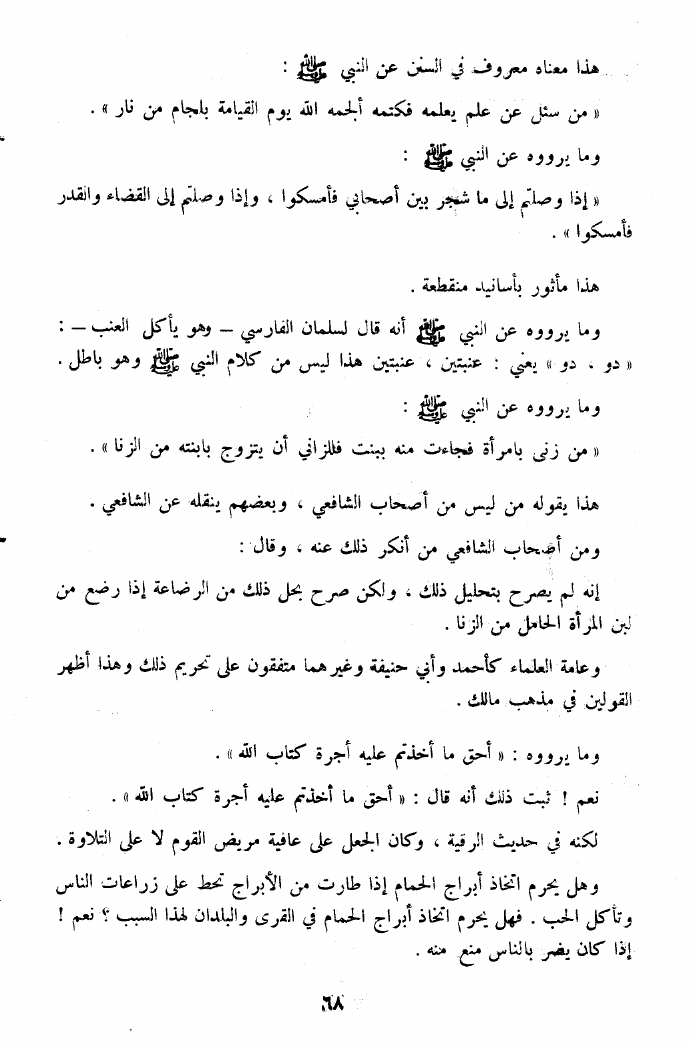 هذا معناه معروف في السنن عن النبي ﷺ :
« من سئل عن علم يعلمه فكتمه ألجمه الله يوم القيامة بلجام من نار » .
وما يرووه عن النبي ﷺ :
« إذا وصلتم إلى ما شجر بين أصحابي فأمسكوا ، وإذا وصلتم إلى القضاء والقدر
فأمسكوا » .
هذا مأثور بأسانيد منقطعة .
وما يرووه عن النبي ﷺ أنه قال لسلمان الفارسي – وهو يأكل العنب – :
« دو ، دو » يعني : عنبتين ، عنبتين هذا ليس من كلام النبي ﷺ وهو باطل .
وما يرووه عن النبي ﷺ :
« من زنى بامرأة فجاءت منه ببنت فللزاني أن يتزوج بابنته من الزنا » .
هذا يقوله من ليس من أصحاب الشافعي ، وبعضهم ينقله عن الشافعي .
ومن أصحاب الشافعي من أنكر ذلك عنه ، وقال :
إنه لم يصرح بتحليل ذلك ، ولكن صرح بحل ذلك من الرضاعة إذا رضع من
لبن المرأة الحامل من الزنا .
وعامة العلماء كأحمد وأبي حنيفة وغيرهما متفقون على تحريم ذلك وهذا أظهر
القولين في مذهب مالك .
وما يرووه : « أحق ما أخذتم عليه أجرة كتاب الله » .
نعم ! ثبت ذلك أنه قال : « أحق ما أخذتم عليه أجرة كتاب الله » .
لكنه في حديث الرقية ، وكان الجعل على عافية مريض القوم لا على التلاوة .
وهل يحرم اتخاذ أبراج الحمام إذا طارت من الأبراج تحط على زراعات الناس
وتأكل الحب . فهل يحرم اتخاذ أبراج الحمام في القرى والبلدان لهذا السبب ؟ نعم !
إذا كان يضر بالناس منع منه .
٦٨